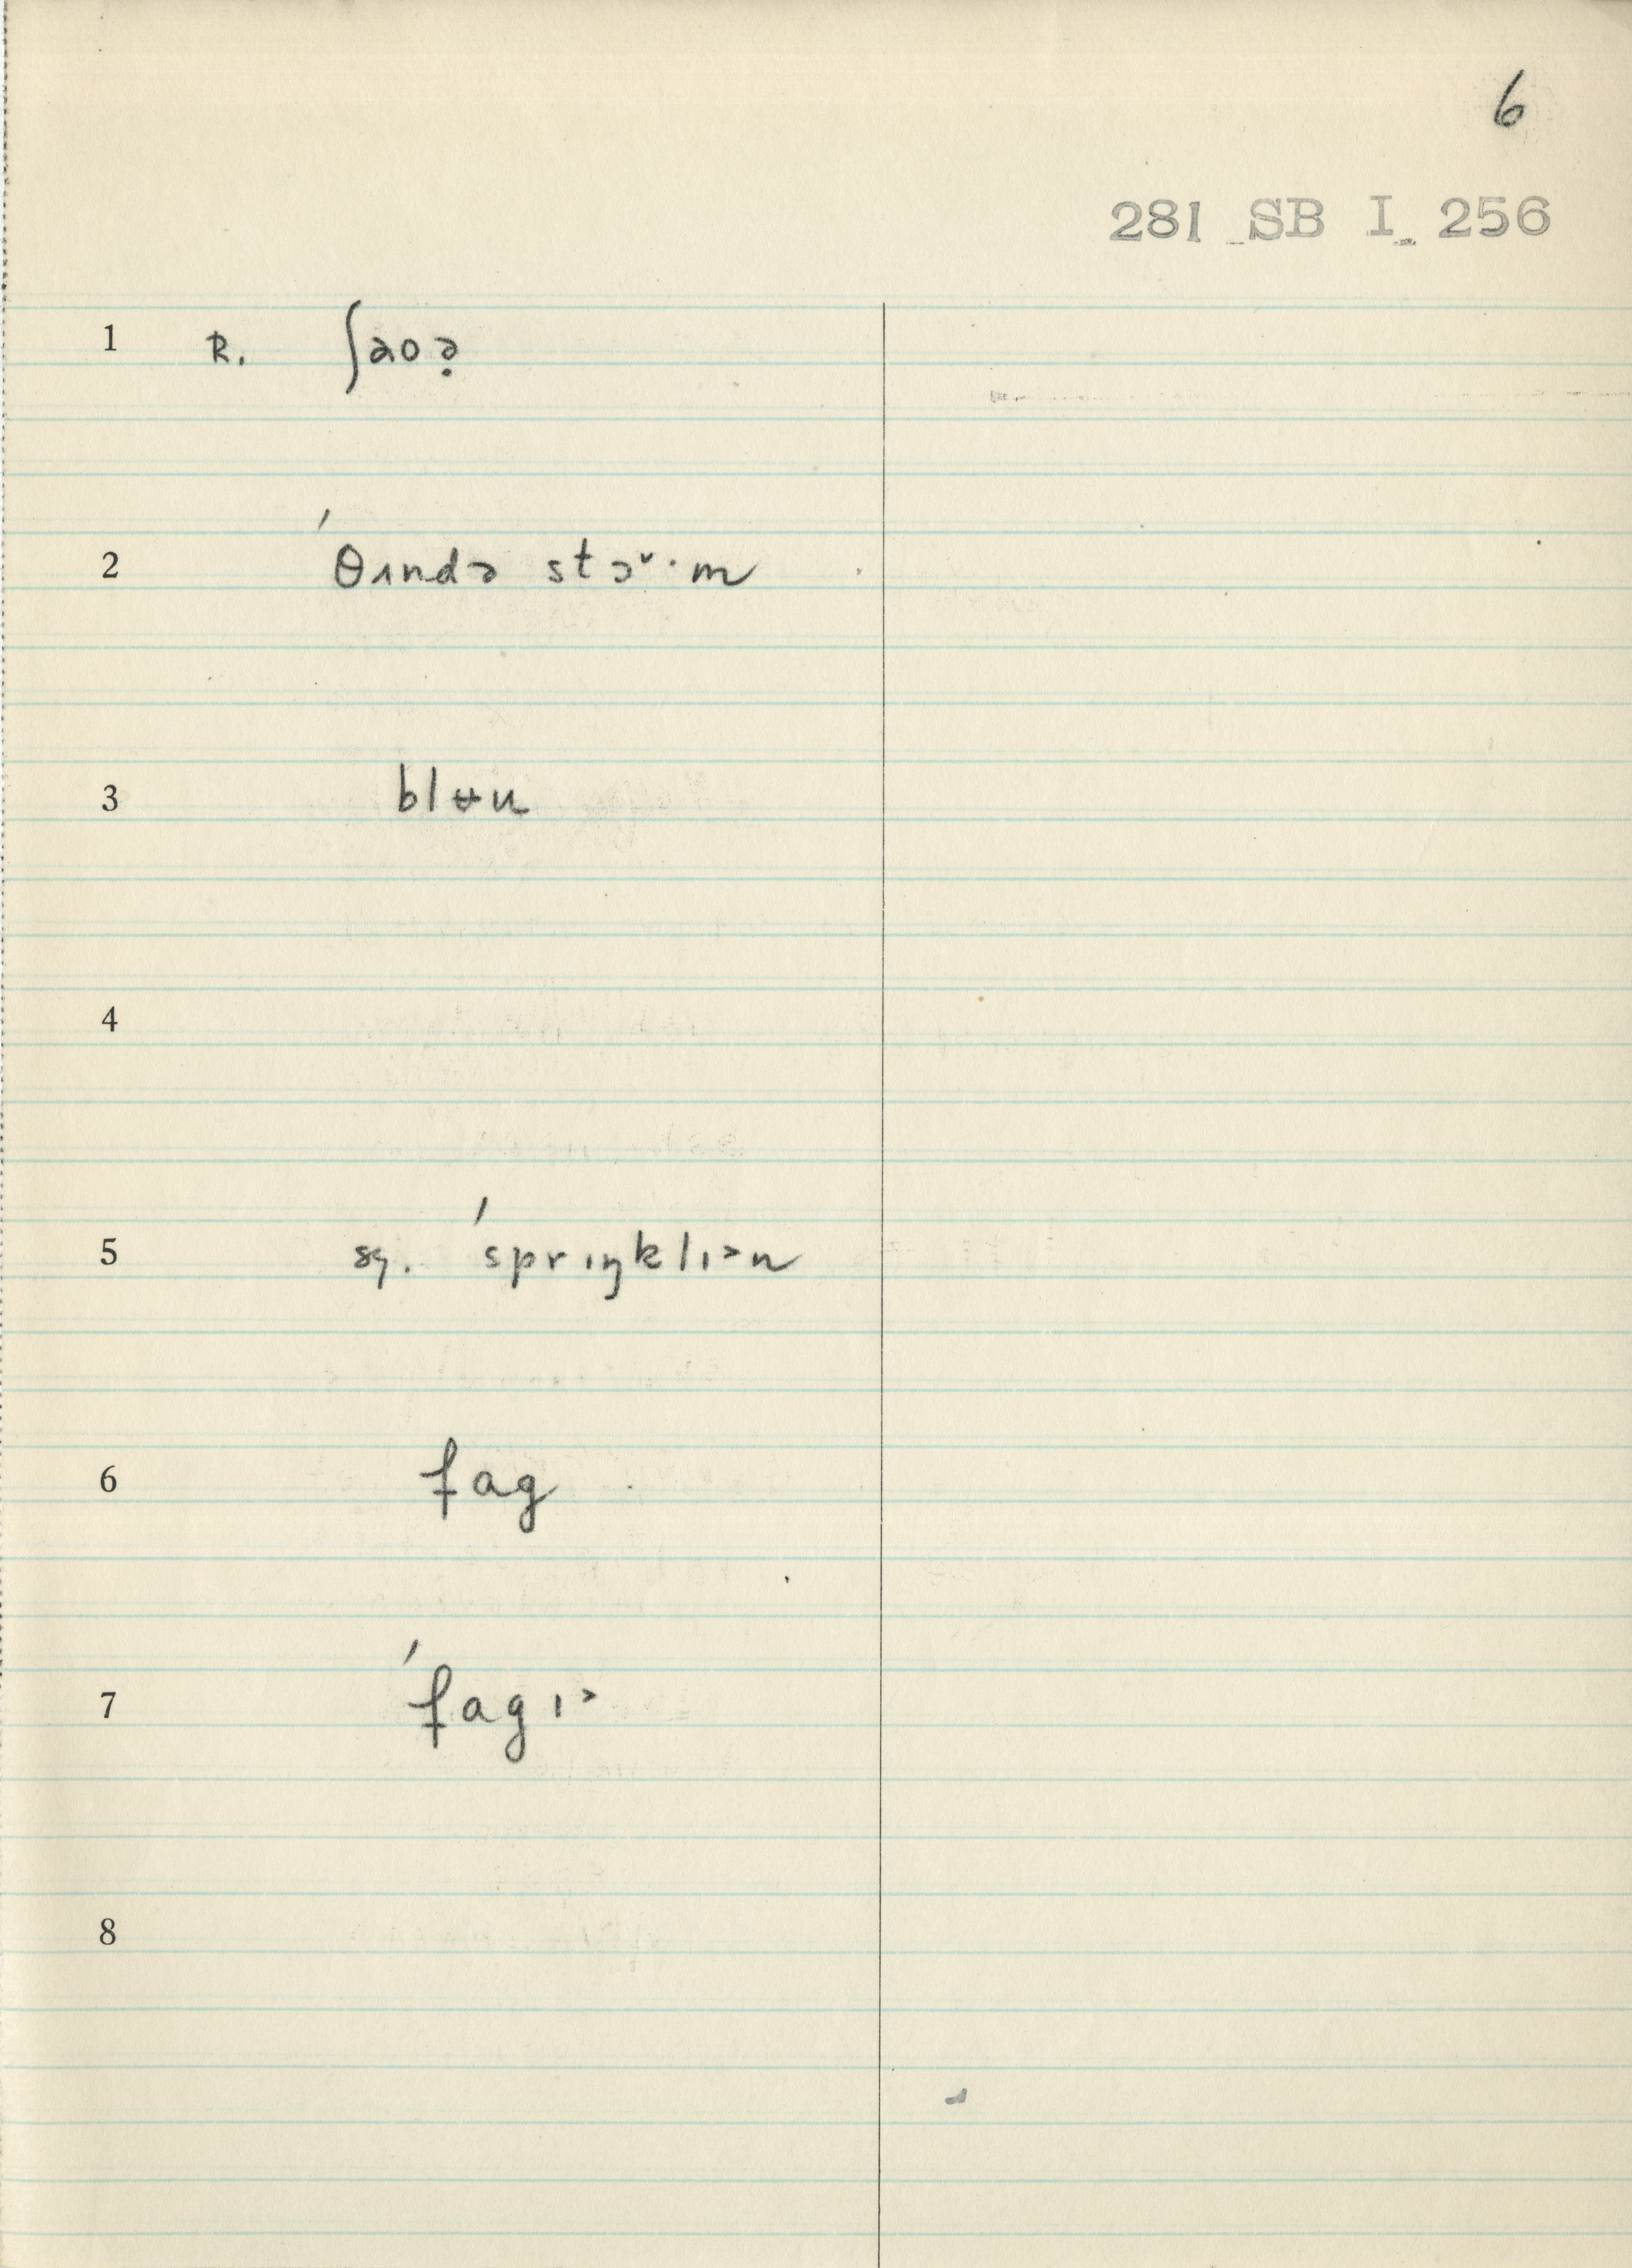 6
281 SB I 256
1 R. ʃaoə̣
2 ˈθʌndə stɔ˅·m
3 blʉu
4
5 sg. ˈsprɪŋklɪ>n
6 fag
7 ˈfagɪ>
8